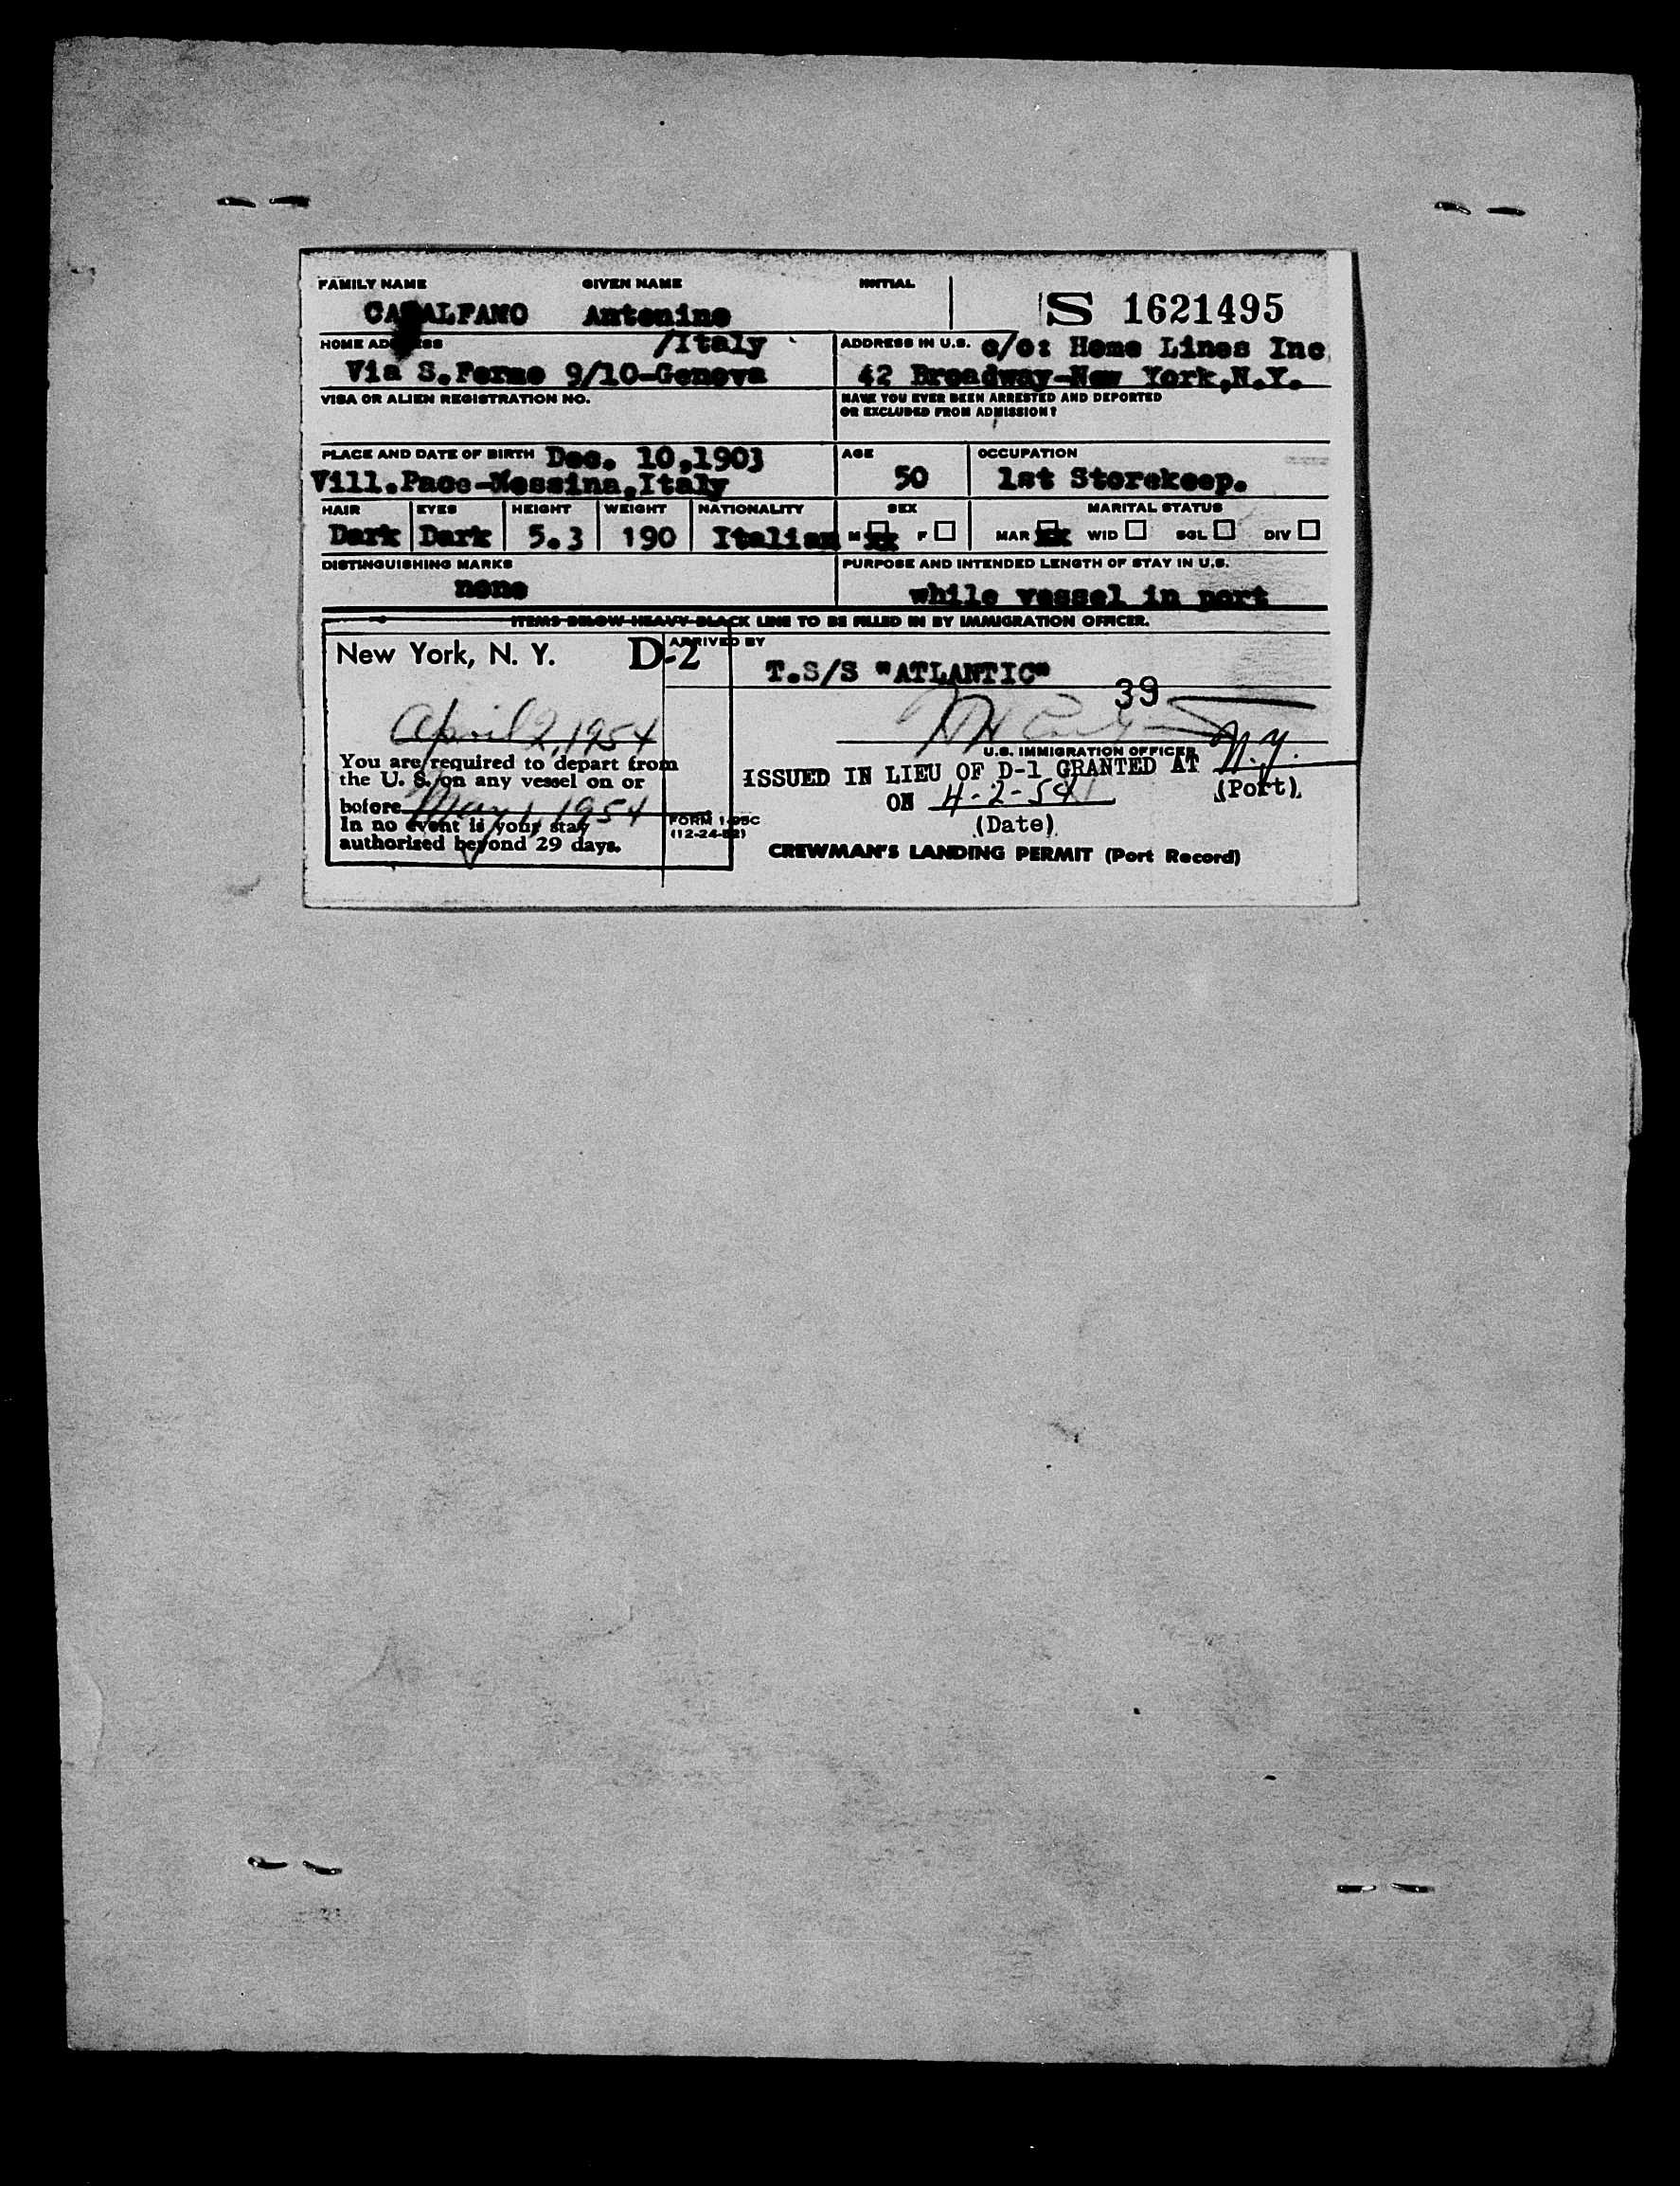 FAMILY NAME GIVEN NAME INITIAL
Antonino S 1621495
HOME ADDRESS /Italy ADDRESS IN U.S. c/o: Home Lines Inc
Via S.Fermo 9/10-Genova 42 Broadway-New York,N.Y.
VISA OR ALIEN REGISTRATION NO. HAVE YOU EVER BEEN ARRESTED AND DEPORTED
OR EXCLUDED FROM ADMISSION?
PLACE AND DATE OF BIRTH Dec. 10,1903 AGE OCCUPATION
Vill.Pace-Messina,Italy 50 1st Storekeep.
HAIR EYES HEIGHT WEIGHT NATIONALITY SEX MARITAL STATUS
Dark Dark 5.3 190 Italian M xx F MAR xx WID SGL DIV
DISTINGUISHING MARKS PURPOSE AND INTENDED LENGTH OF STAY IN U.S.
none while vessel in port
ITEMS BELOW HEAVY BLACK LINE TO BE FILLED IN BY IMMIGRATION OFFICER.
New York, N. Y. D-2 ARRIVED BY
T.S/S "ATLANTIC"
39
April 2, 1954
U.S. IMMIGRATION OFFICER
You are required to depart from
the U. S. on any vessel on or
before May 1, 1954
In no event is your stay
authorized beyond 29 days.
FORM I-95C
(12-24-52)
ISSUED IN LIEU OF D-1 GRANTED AT N.Y.
(Port)
ON 4-2-54
(Date)
CREWMAN'S LANDING PERMIT (Port Record)